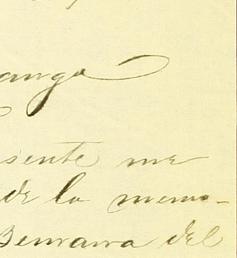 anga
sente me
de la memo-
Semana del